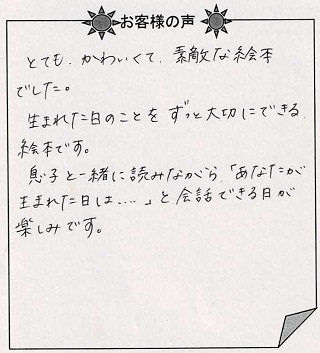 お客様の声
とても、かわいくて、素敵な絵本
でした。
生まれた日のことを ずっと大切にできる
絵本です。
息子と一緒に読みながら、「あなたが
生まれた日は....」と会話できる日が
楽しみです。